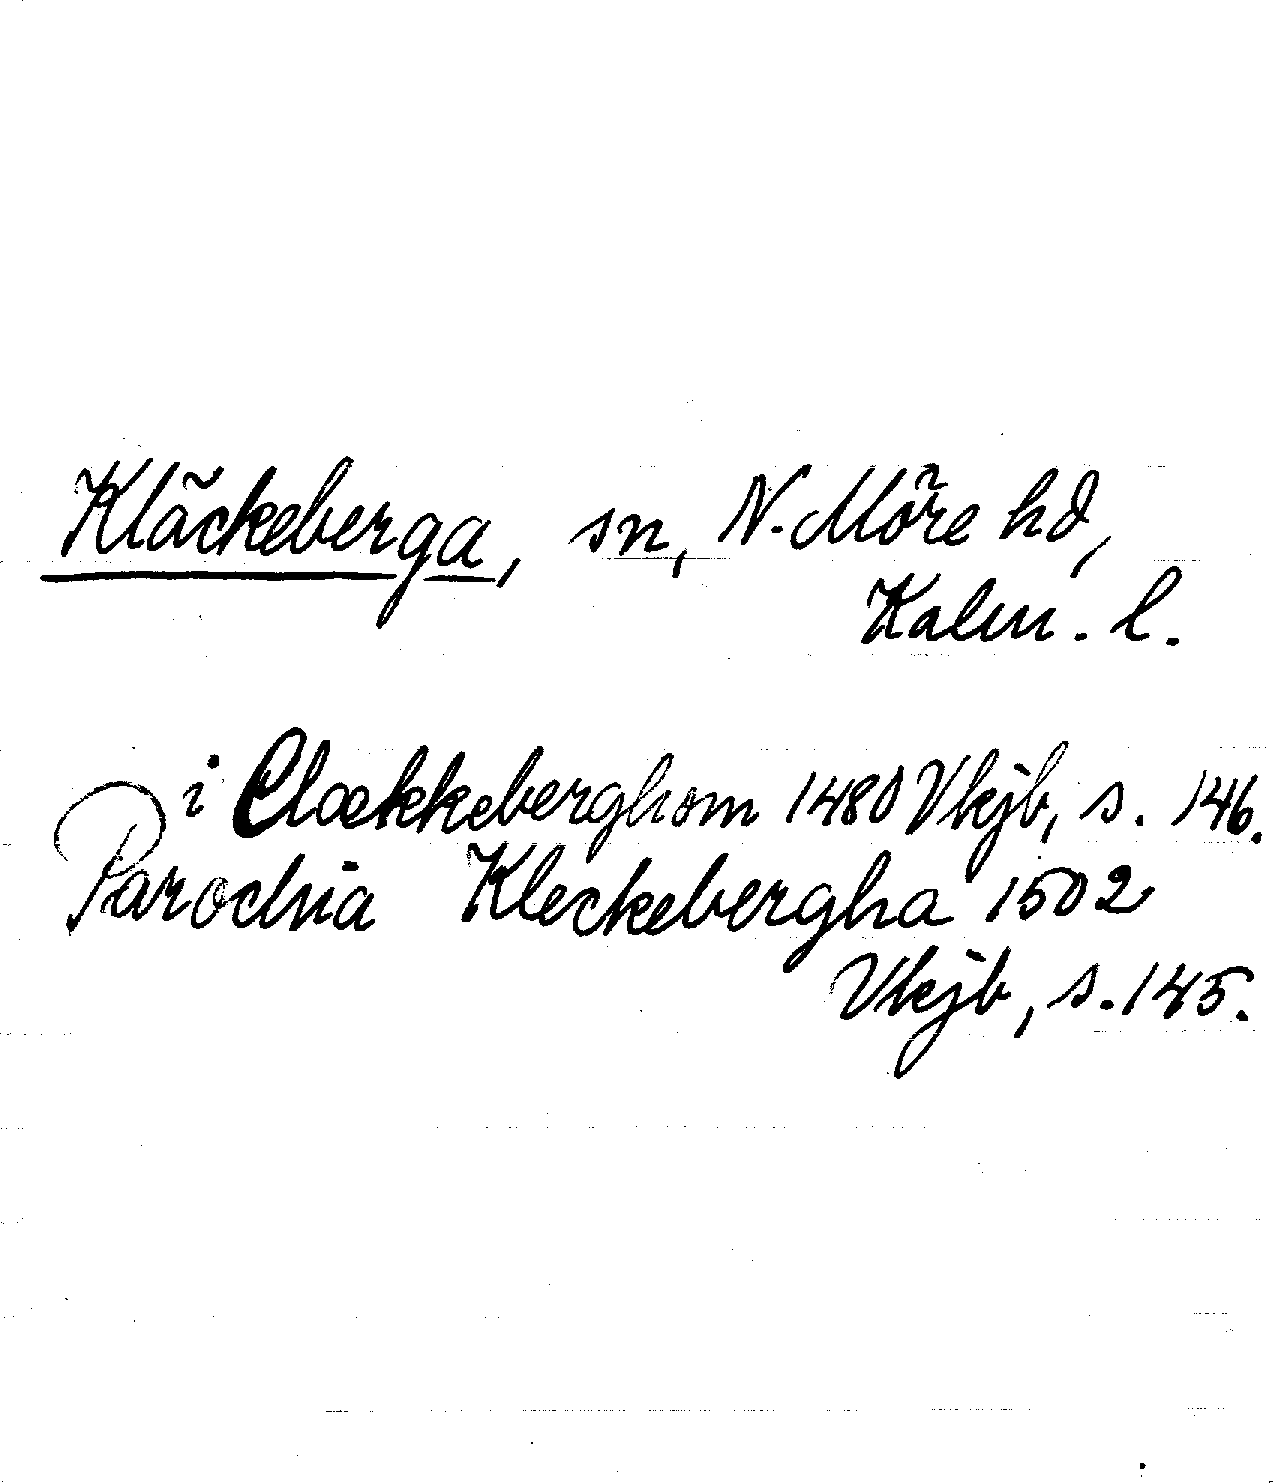 Kläckeberga, sn, N. Möre hd,
Kalm. l.
i Clækkeberghom 1480 Vkjb, s. 146.
Parochia Kleckebergha 1502
Vkjb, s. 145.